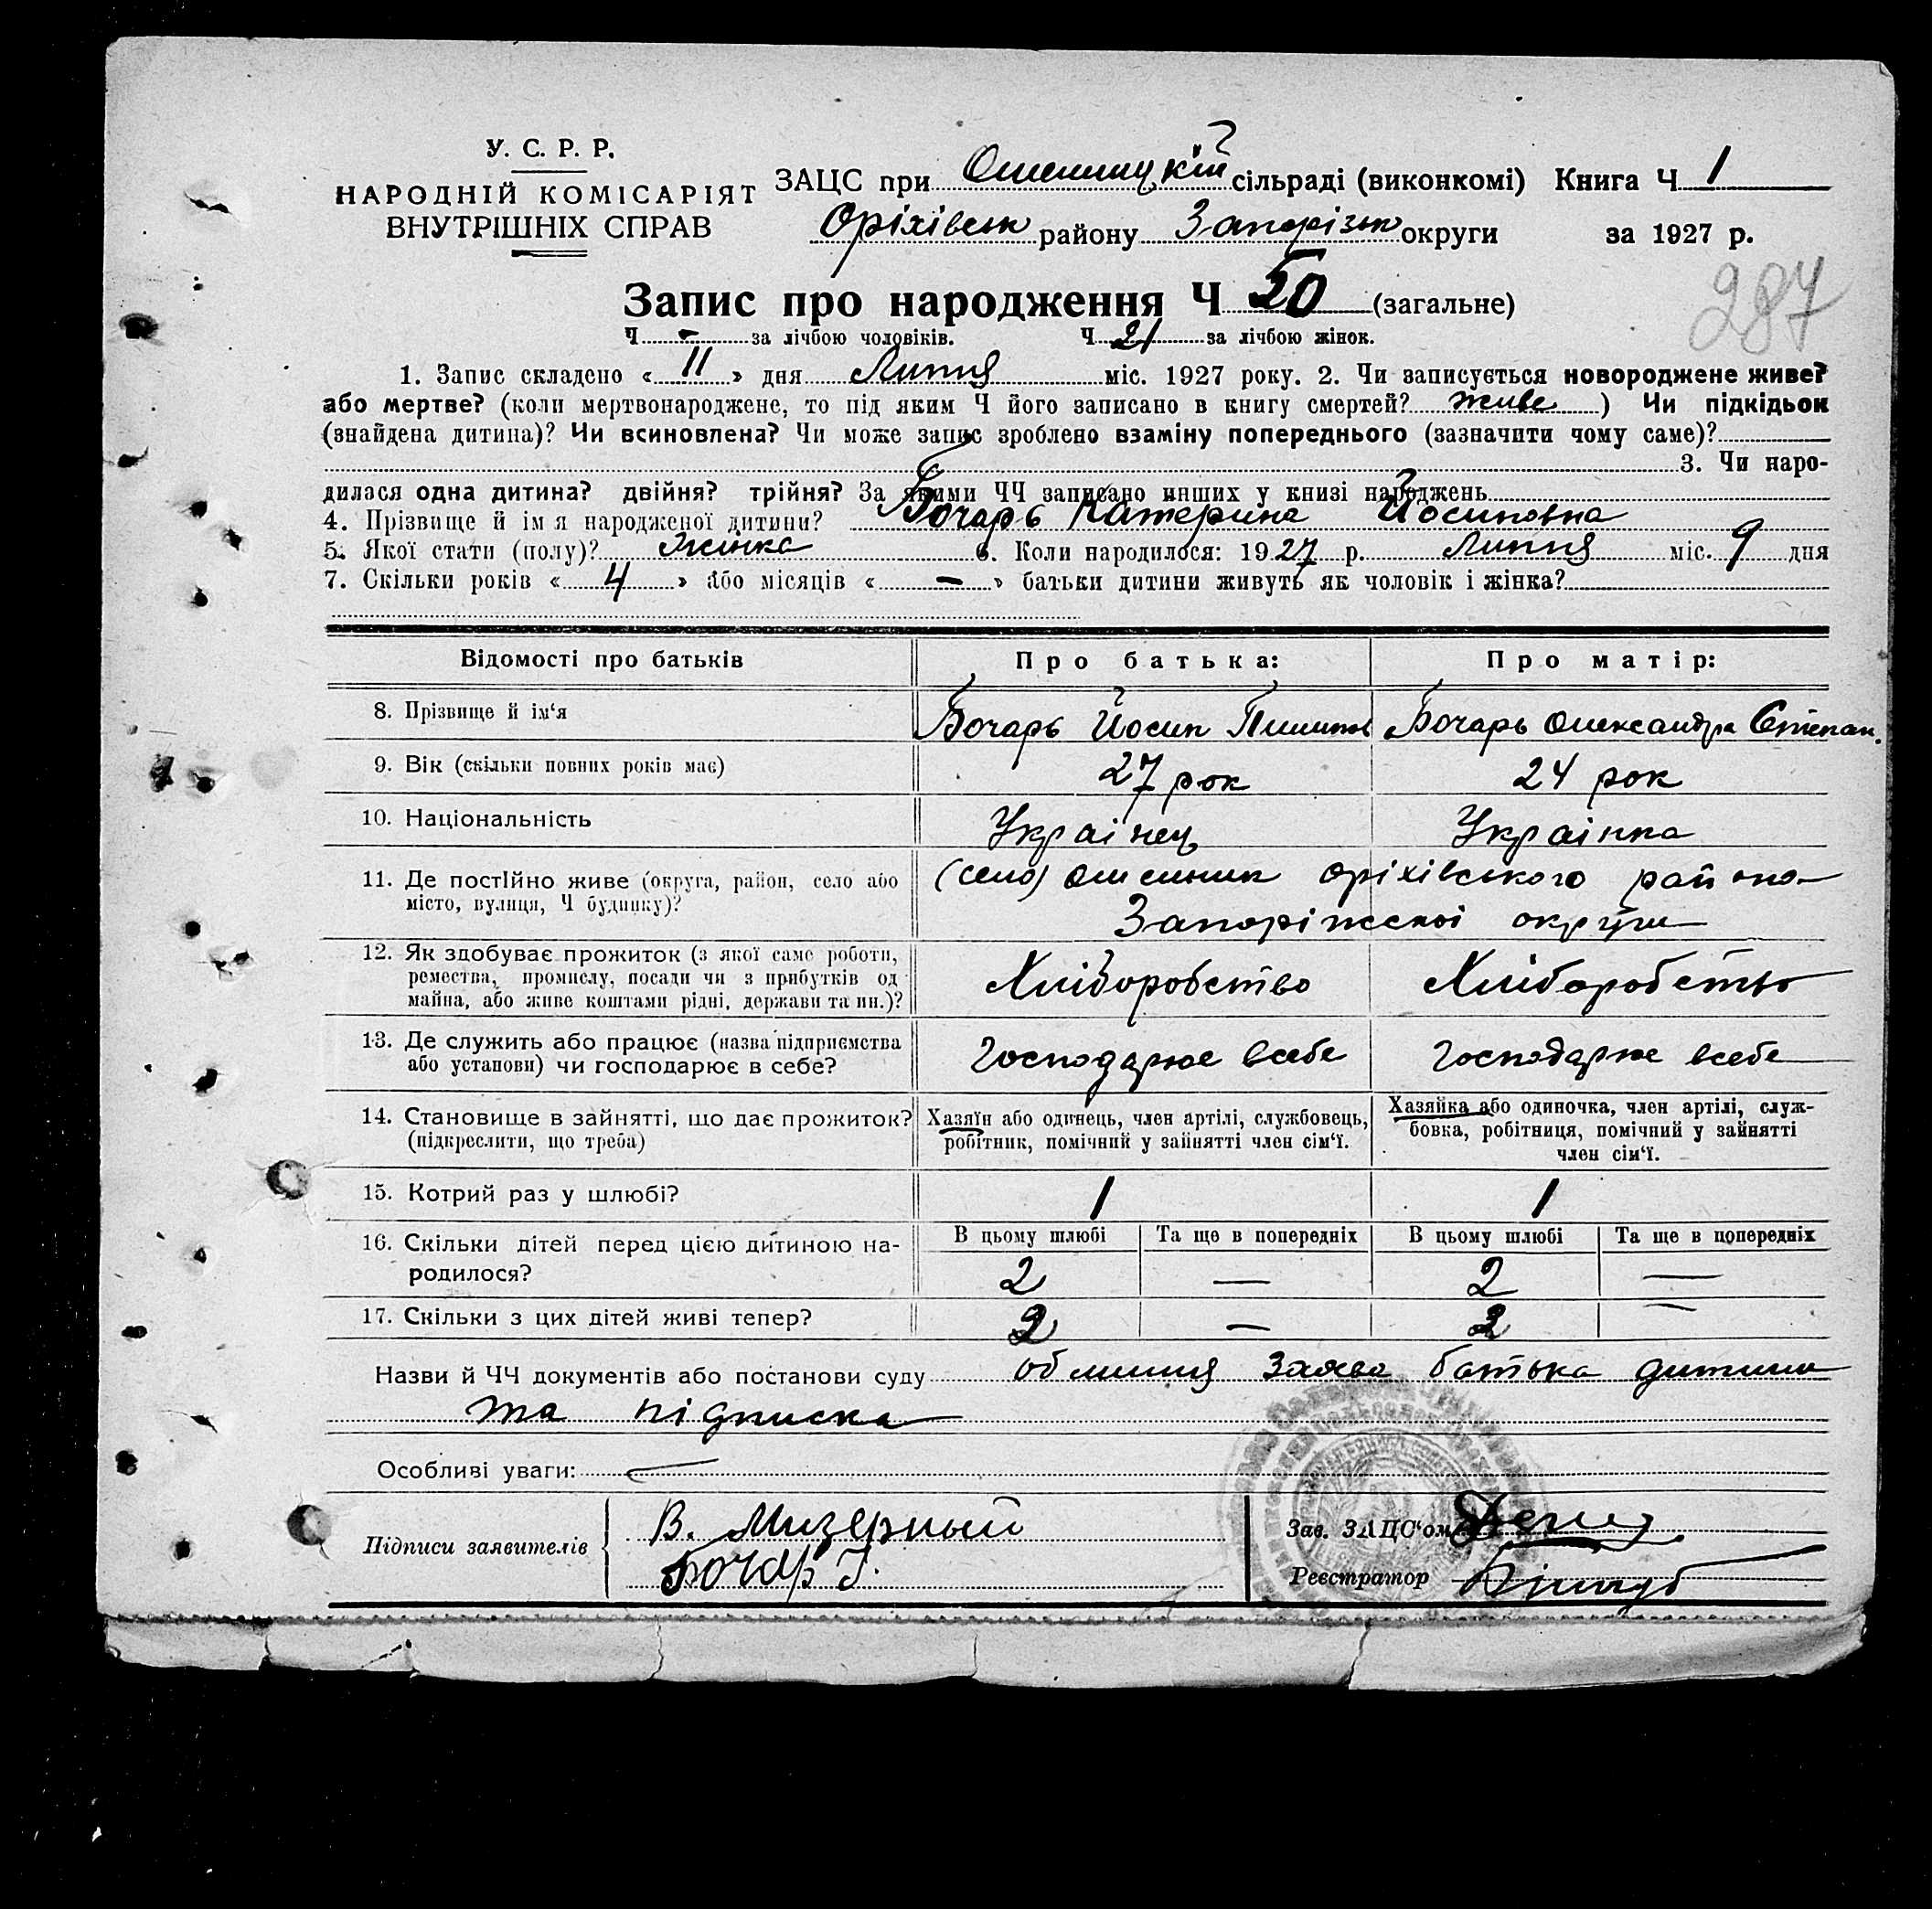 У. С. Р. Р.
НАРОДНІЙ КОМІСАРІЯТ
ВНУТРІШНІХ СПРАВ
ЗАЦС при Омельницькій сільраді (виконкомі) Книга Ч 1
Оріхівськ району Запорізьк округи за 1927 р.
287
Запис про народження Ч 50 (загальне)
Ч - за лічбою чоловіків. Ч 21 за лічбою жінок.
1. Запис складено « 11 » дня Липня міс. 1927 року. 2. Чи записується новороджене живе?
або мертве? (коли мертвонароджене, то під яким Ч його записано в книгу смертей? живе ) Чи підкідьок
(знайдена дитина)? Чи всиновлена? Чи може запис зроблено взаміну попереднього (зазначити чому саме)?
3. Чи наро-
дилася одна дитина? двійня? трійня? За якими ЧЧ записано инших у книзі народжень
4. Прізвище й ім я народженої дитини? Бочарь Катерина Йосиповна
5. Якої стати (полу)? Жінка 6. Коли народилося: 1927 р. Липня міс. 9 дня
7. Скільки років « 4 » або місяців « — » батьки дитини живуть як чоловік і жінка?
Відомості про батьків Про батька: Про матір:
8. Прізвище й ім'я Бочарь Йосип Пилипов Бочарь Олександра Степан.
9. Вік (скільки повних років має) 27 рок 24 рок
10. Національність Украінец Украінка
11. Де постійно живе (округа, район, село або
місто, вулиця, Ч будинку)?
(село) Омельник Оріхівського району
Запоріжскоі округи
12. Як здобуває прожиток (з якої саме роботи,
ремества, промислу, посади чи з прибутків од
майна, або живе коштами рідні, держави та ин.)?
Хліборобство Хліборобство
13. Де служить або працює (назва підприємства
або установи) чи господарює в себе?
Господарює всебе Господарює всебе
14. Становище в зайнятті, що дає прожиток?
(підкреслити, що треба)
Хазяїн або одинець, член артілі, службовець,
робітник, помічний у зайнятті член сім'ї.
Хазяйка або одиночка, член артілі, служ-
бовка, робітниця, помічний у зайнятті
член сім'ї.
15. Котрий раз у шлюбі? 1 1
16. Скільки дітей перед цією дитиною на-
родилося?
В цьому шлюбі Та ще в попередніх В цьому шлюбі Та ще в попередніх
2 — 2 —
17. Скільки з цих дітей живі тепер? 2 — 2 —
Назви й ЧЧ документів або постанови суду заява батька дитини
та підписка
Особливі уваги: —
Підписи заявителів
В. Мизерный
Бочар І.
Зав. ЗАЦС'ом
Реєстратор